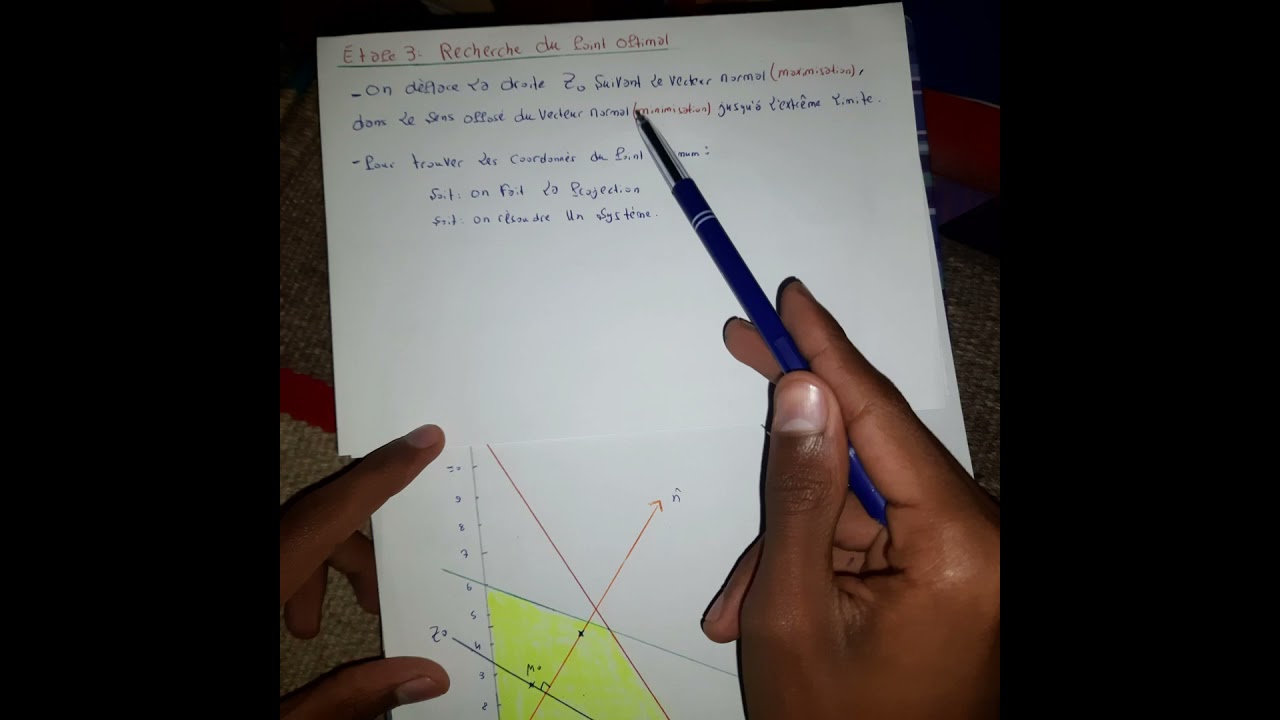 Étape 3. Recherche du Point Optimal
- On déplace la droite Z₀ suivant le vecteur normal (maximisation),
dans le sens opposé du vecteur normal (minimisation) jusqu'à l'extrême limite.
- Pour trouver les coordonnés du Point mum :
Soit : on fait la Projection
Soit : on résoudre un système.
10
9
n̂
8
7
6
5
Z₀
4
M₀
3
2